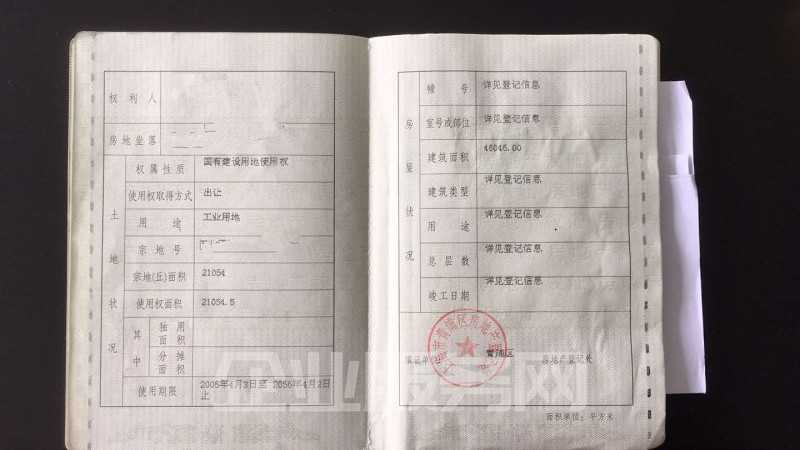 权利人
房地坐落
土地状况
权属性质 国有建设用地使用权
使用权取得方式 出让
用途 工业用地
宗地号
宗地(丘)面积 21054
使用权面积 21054.5
其中
独用面积
分摊面积
使用期限 2006年4月3日至 2056年4月2日
止
房屋状况
幢号 详见登记信息
室号或部位 详见登记信息
建筑面积 46046.00
建筑类型 详见登记信息
用途 详见登记信息
总层数 详见登记信息
竣工日期 详见登记信息
青浦区 房地产登记处
面积单位：平方米
企业服务网